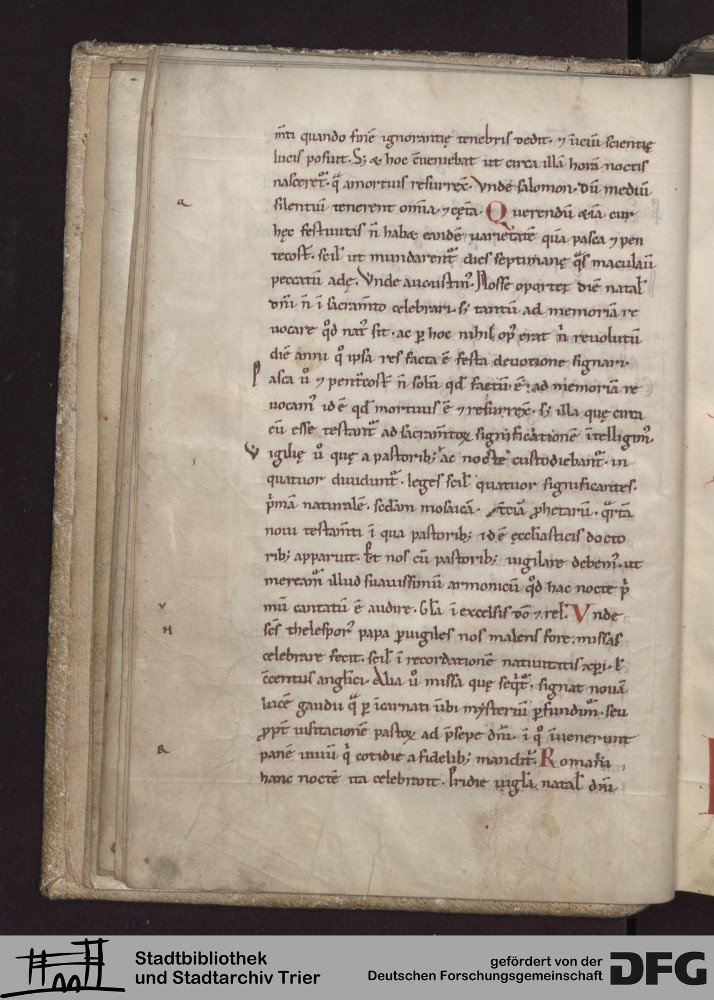 m̄ti quando finē ignorantię tenebris dedit. ⁊ uīcīu scientię
lucis posuit. S; & hoc c̄ueniebat ut circa illā horā noctis
nasceret᷑. q̄ amortuis resurrex̄. Vnde salomon. Dū mediū
silentiū tenerent om̄ia. ⁊ cęt̄a. Querendū &iā cur
a
hęc festiuitas n̄ habet eandē uarietatē quā pasca ⁊ pen
tecost̄. scil̄ ut mundarent᷑ dies septimanę q̊s maculauit
peccatū adę. Vnde augustin᷒. Nosse oportet diē natal̄
dn̄i n̄ ī sacram̄to celebrari. s; tantū ad memoriā re
uocare q̊d nat᷒ sit. ac p̱ hoc nihil op᷒ erat n̄ reuolutū
diē anni q̊ ipsa res facta ē festa deuotione signari.
Pasca ů ⁊ pentēcost̄ n̄ solū qd̄ factū ē. ad memoriā re
uocam᷒ id ē qd̄ mortuus ē ⁊ resurrex̄. s; illa quę circa
eū esse testant᷑ ad sacram̄toꝝ significationē ītelligim᷒.
Vigilię ů quę a pastorib; ac nocte custodiebant᷑. in
quatuor diuidunt᷑. leges scil̄ quatuor significantes.
p̓mā naturalē. scd̄am mosaicā. t̄ciā ꝓphetarū. q̄rtā
noui testam̄ti ī qua pastorib; id ē ęccl̄iasticis docto
rib; apparuit. Et nos cū pastorib; uigilare debem᷒. ut
meream᷒ illud suauissimū armonicū q̊d hac nocte p̓
mū cantatū ē audire. Gl̄a ī excelsis dō ⁊ rel̄. Vnde
v
sc̄s thelespor᷒ papa p̱uigiles nos malens fore. missas
H
celebrare fecit. scil̄ ī recordationē natiuitatis xp̄i. &
c̄centus angl̄ici. Alia ů missa quę seq̇t᷑. signat nouā
lucē gaudii q̄ p̱ īcarnati ūbi mẏsteriū p̱fundim᷒. seu
ꝓpt̄ uisitationē pastoꝝ ad p̄sepe dn̄i. ī q̊ īuenerunt
R
panē uiuū q̇ cotidie a fidelib; mandit᷑. Romana
hanc noctē ita celebrant. Pridie uigl̄a natal̄ dn̄i
Stadtbibliothek
und Stadtarchiv Trier
gefördert von der
Deutschen Forschungsgemeinschaft
DFG